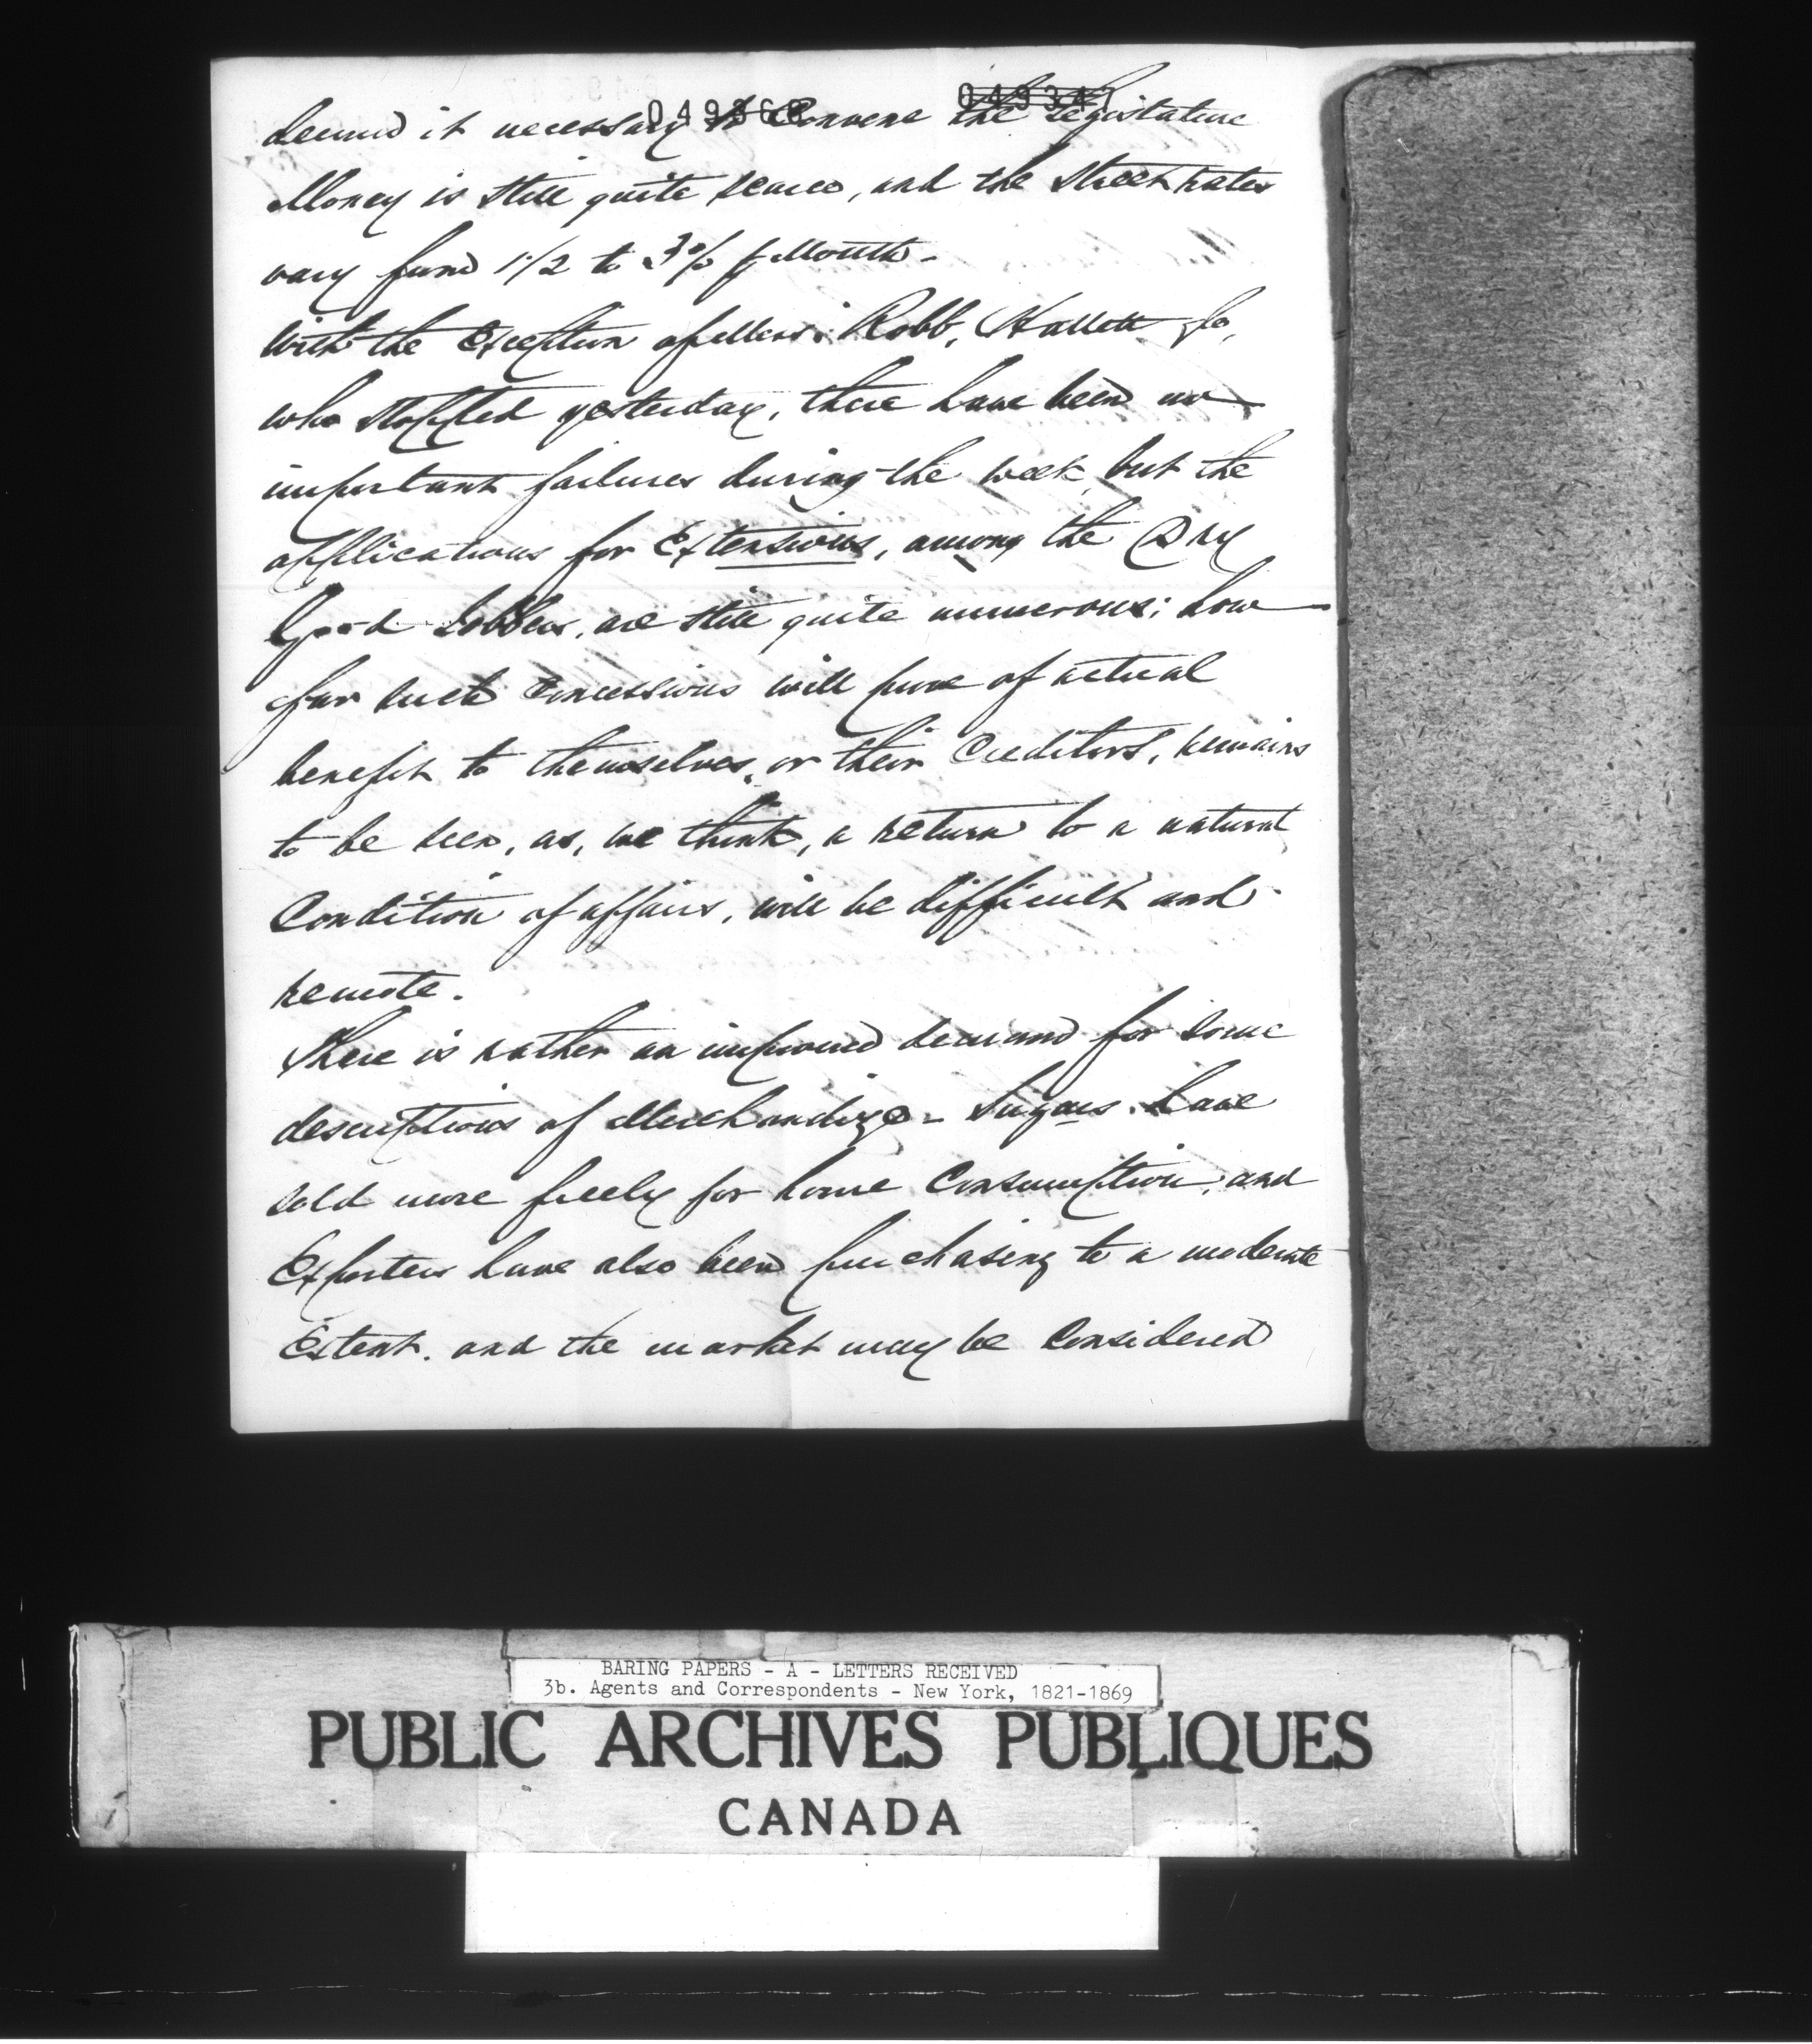 049368
04934
deemed it necessary to Convene the Legislature
Money is still quite scarce, and the Street rates
vary from 1 1/2 to 3% p Month -
With the Exception of Messrs. Robb, Hallett & Co,
who stopped yesterday, there have been no
important failures during the week, but the
applications for Extensions, among the Dry
Good Jobbers, are still quite numerous; how
far such Concessions will prove of actual
benefit to themselves, or their Creditors, remains
to be seen, as, we think, a return to a natural
Condition of affairs, will be difficult and
remote.
There is rather an improved demand for some
descriptions of Merchandize - Sugars have
sold more freely for home Consumption, and
Exporters have also been purchasing to a moderate
Extent. and the market may be Considered
BARING PAPERS - A - LETTERS RECEIVED
3b. Agents and Correspondents - New York, 1821-1869
PUBLIC ARCHIVES PUBLIQUES
CANADA